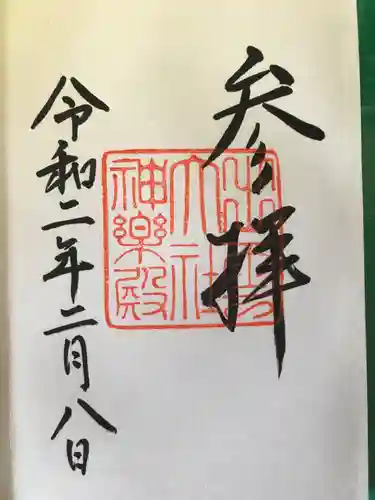 参拝
出雲大社神楽殿
令和二年二月八日